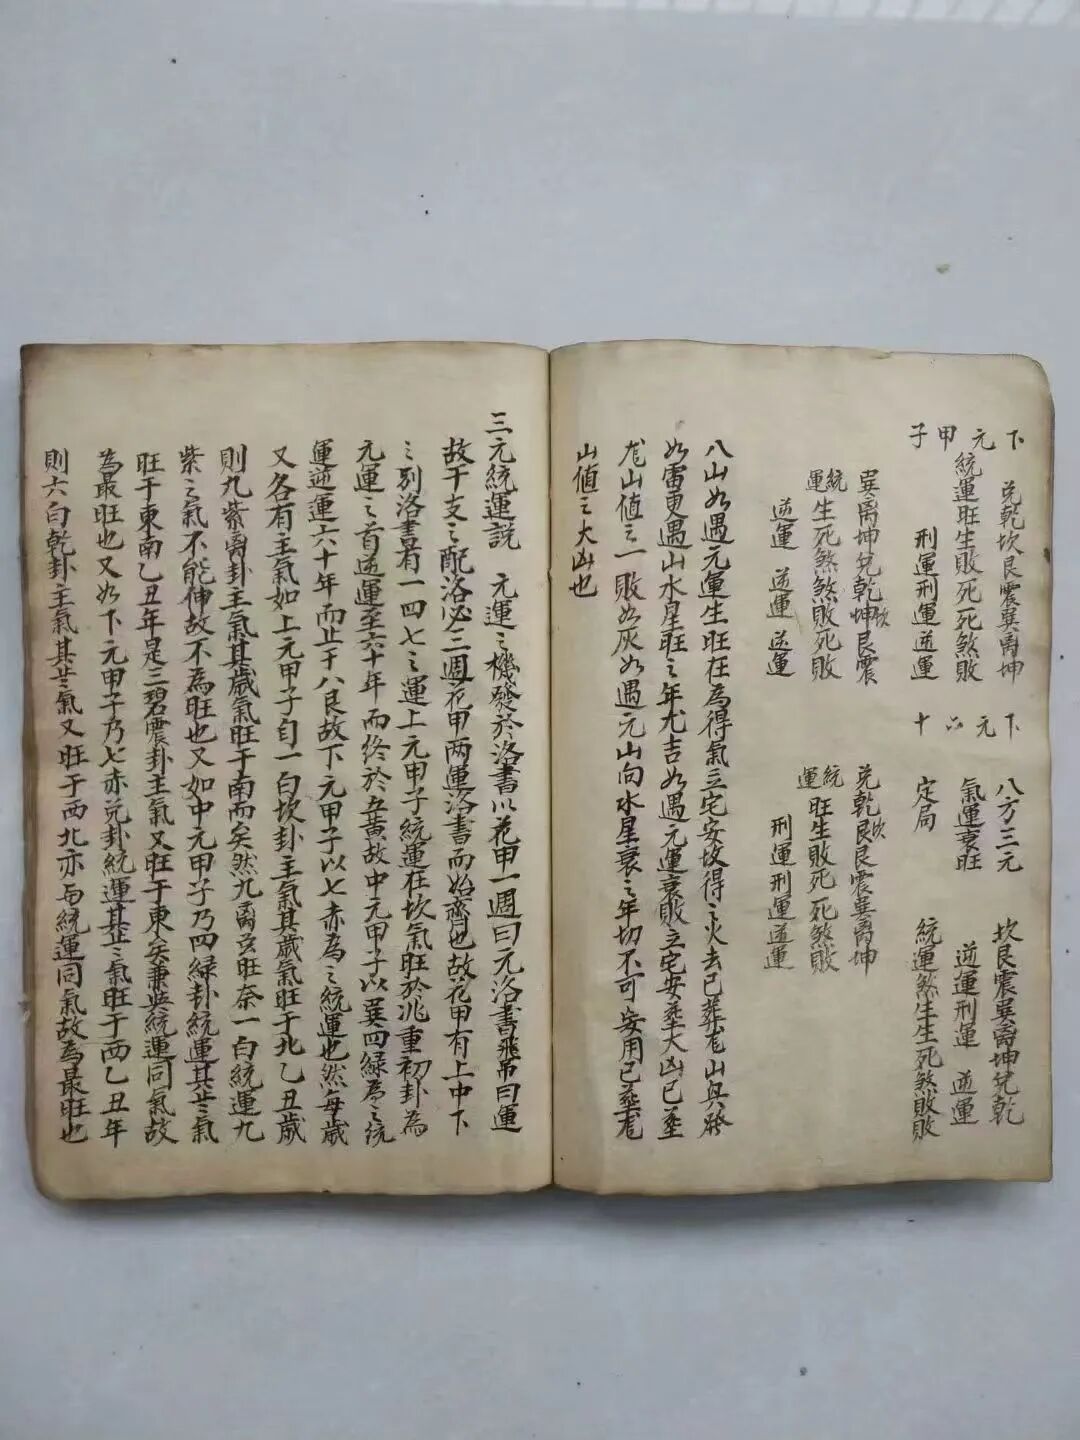 下元甲子
兌乾坎艮震巽离坤
統運旺生敗死死煞敗
刑運刑運逆運
巽离坤兌乾坎艮震
統運生死煞煞敗死敗
逆運 逆運 逆運
下元六十
八方三元
氣運衰旺
定局
兌乾坎艮震巽离坤
統運旺生敗死死煞敗
刑運刑運逆運
坎艮震巽离坤兌乾
逆運刑運 逆運
統運煞生生死煞敗敗
八山如遇元運生旺在為得氣立宅安坟得之火去已葬龙山與發
如雷更遇山水星旺之年尤吉如遇元運衰敗立宅安塟大凶已塟
龙山值之一敗如灰如遇元山向水星衰之年切不可安用已塟龙
山值之大凶也
三元統運説 元運之機發於洛書以花甲一週曰元洛書飛吊曰運
故干支之配洛必三週花甲两運洛書而始齊也故花甲有上中下
之別洛書有一四七之運上元甲子統運在坎氣旺於兆重初卦為
元運之首逆運至六十年而终於五黄故中元甲子以巽四緑為之統
運逆運六十年而止于八艮故下元甲子以七赤為之統運也然每歲
又各有主氣如上元甲子自一白坎卦主氣其歲氣旺于北乙丑歲
則九紫离卦主氣其歲氣旺于南而矣然九离亥旺奈一白統運九
紫之氣不能伸故不為旺也又如中元甲子乃四緑卦統運其㞢氣
旺于東南乙丑年是三碧震卦主氣又旺于東矣兼與統運同氣故
為最旺也又如下元甲子乃七赤兑卦統運其㞢氣旺于西乙丑年
則六白乾卦主氣其㞢氣又旺于西北亦與統運同氣故為最旺也